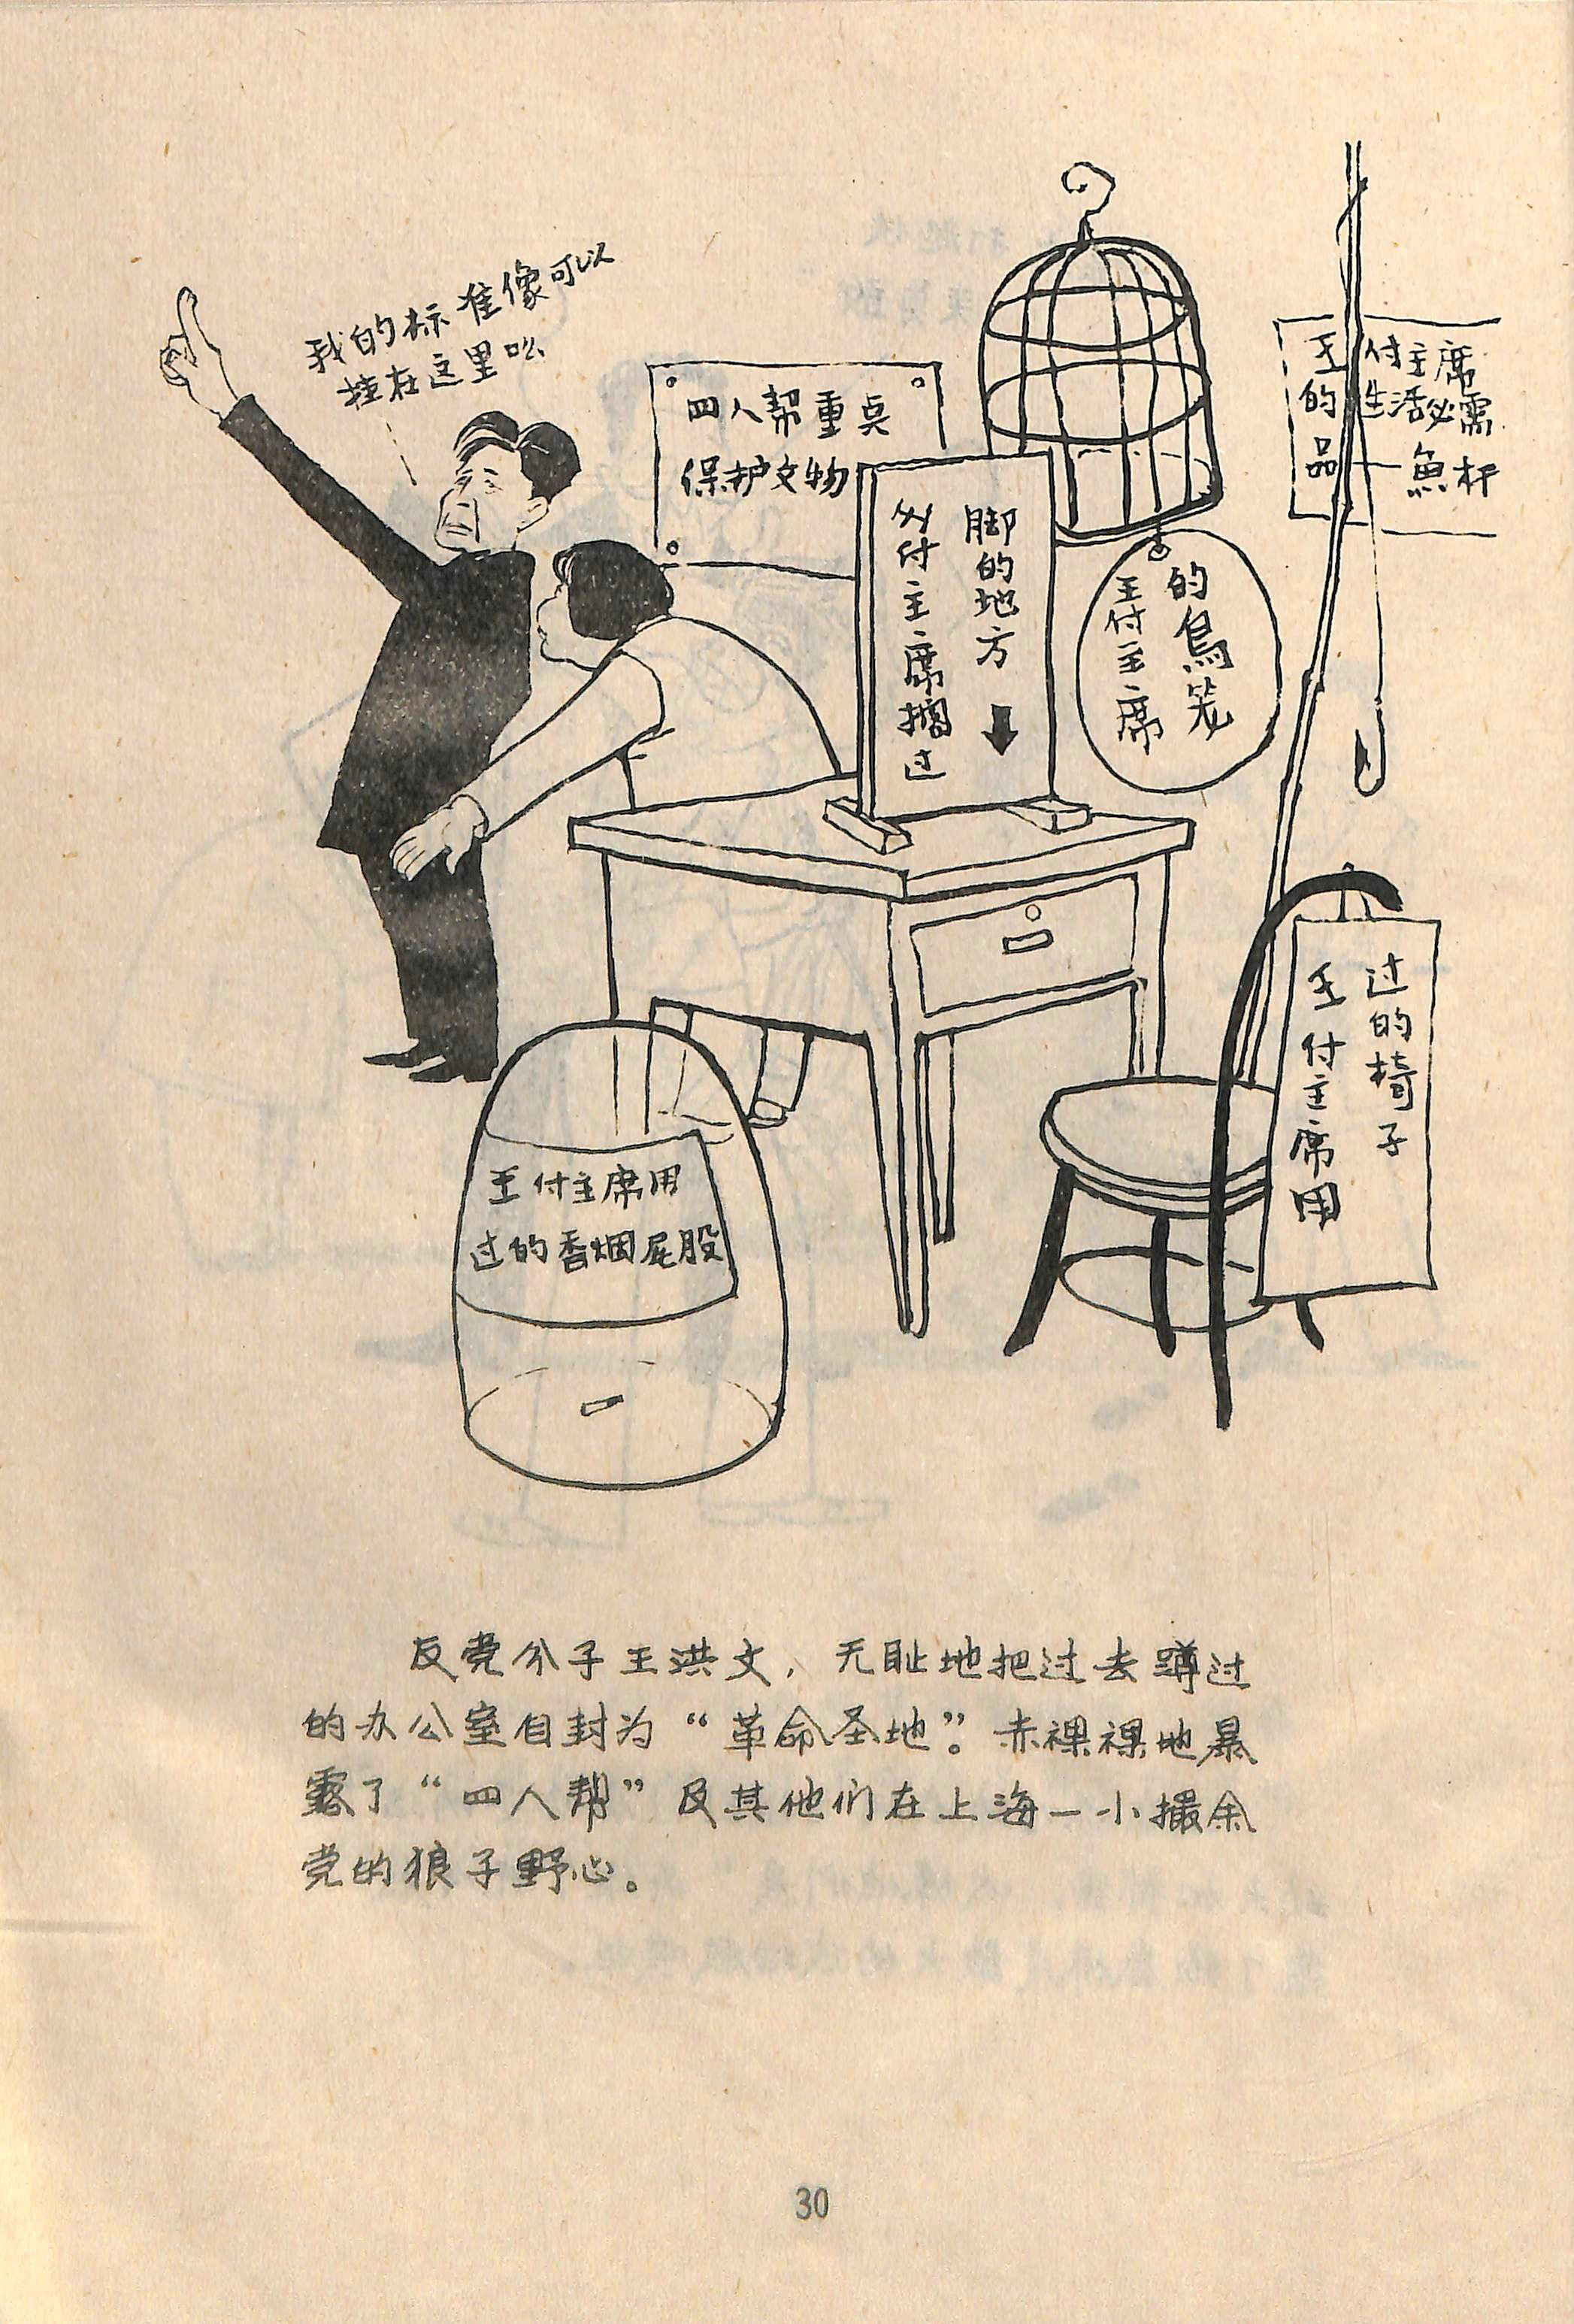 我的标准像可以
挂在这里吆
四人帮重点
保护文物
王付主席搁过
脚的地方
王付主席
的鸟笼
王付主席
的生活必需
品—魚杆
王付主席用
过的椅子
王付主席用
过的香烟屁股
反党分子王洪文，无耻地把过去蹲过
的办公室自封为“革命圣地”。赤裸裸地暴
露了“四人帮”及其他们在上海一小撮余
党的狼子野心。
30